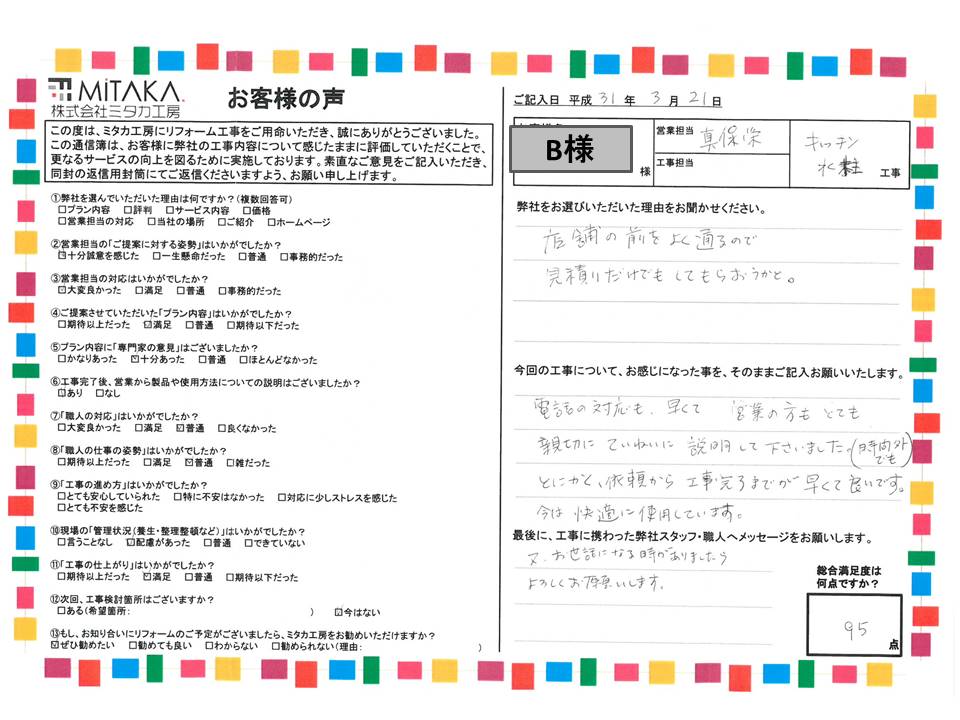 MiTAKA.
株式会社ミタカ工房
お客様の声
この度は、ミタカ工房にリフォーム工事をご用命いただき、誠にありがとうございました。
この通信簿は、お客様に弊社の工事内容について感じたままに評価していただくことで、
更なるサービスの向上を図るために実施しております。素直なご意見をご記入いただき、
同封の返信用封筒にてご返信くださいますよう、お願い申し上げます。
①弊社を選んでいただいた理由は何ですか?(複数回答可)
□プラン内容 □評判 □サービス内容 □価格
□営業担当の対応 □当社の場所 □ご紹介 □ホームページ
②営業担当の「ご提案に対する姿勢」はいかがでしたか?
☑十分誠意を感じた □一生懸命だった □普通 □事務的だった
③営業担当の対応はいかがでしたか?
☑大変良かった □満足 □普通 □事務的だった
④ご提案させていただいた「プラン内容」はいかがでしたか?
□期待以上だった ☑満足 □普通 □期待以下だった
⑤プラン内容に「専門家の意見」はございましたか?
□かなりあった ☑十分あった □普通 □ほとんどなかった
⑥工事完了後、営業から製品や使用方法についての説明はございましたか?
☑あり □なし
⑦「職人の対応」はいかがでしたか?
□大変良かった □満足 ☑普通 □良くなかった
⑧「職人の仕事の姿勢」はいかがでしたか?
□期待以上だった □満足 ☑普通 □雑だった
⑨「工事の進め方」はいかがでしたか?
□とても安心していられた □特に不安はなかった □対応に少しストレスを感じた
□とても不安を感じた
⑩現場の「管理状況(養生・整理整頓など)」はいかがでしたか?
□言うことなし ☑配慮があった □普通 □できていない
⑪「工事の仕上がり」はいかがでしたか?
□期待以上だった ☑満足 □普通 □期待以下だった
⑫次回、工事検討箇所はございますか?
□ある(希望箇所: ) ☑今はない
⑬もし、お知り合いにリフォームのご予定がございましたら、ミタカ工房をお勧めいただけますか?
☑ぜひ勧めたい □勧めても良い □わからない □勧められない(理由: )
ご記入日 平成 31 年 3 月 21 日
B様
様
営業担当 真保栄
工事担当
キッチン
水栓 工事
弊社をお選びいただいた理由をお聞かせください。
店舗の前をよく通るので
見積りだけでもしてもらおうかと。
今回の工事について、お感じになった事を、そのままご記入お願いいたします。
電話の対応も、早くて 営業の方もとても
親切にていねいに説明して下さいました。(時間外でも)
とにかく、依頼から工事完了までが早くて良いです。
今は快適に使用しています。
最後に、工事に携わった弊社スタッフ・職人へメッセージをお願いします。
又、お世話になる時がありましたら
よろしくお願いします。
総合満足度は
何点ですか?
95
点